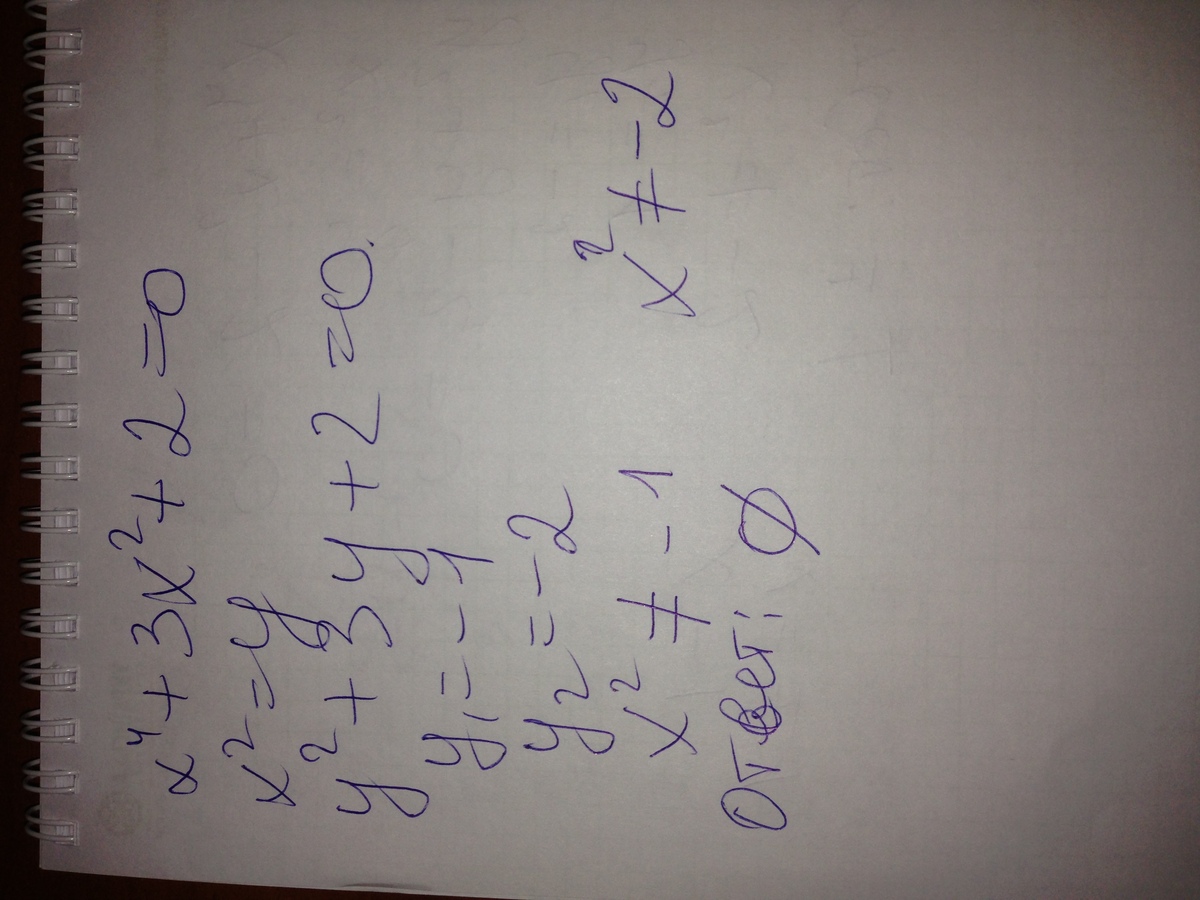 x⁴ + 3x² + 2 = 0
x² = y
y² + 3y + 2 = 0.
y₁ = -1
y₂ = -2
x² ≠ -1 x² ≠ -2
Ответ: ∅